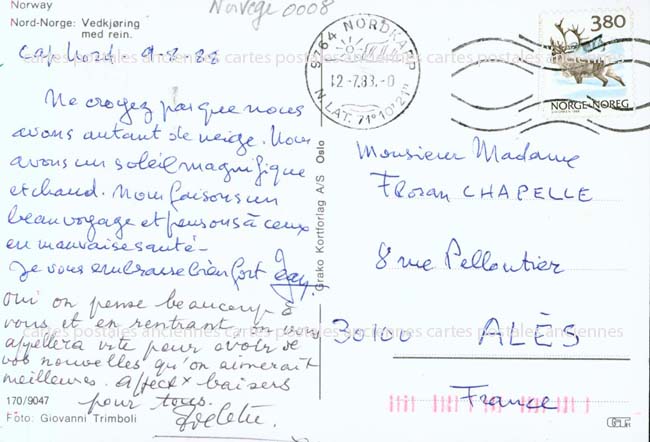 Norway
Nord-Norge: Vedkjøring
med rein.
Norvege 0008
Cap Nord 9-7-88
Ne croyez pas que nous
avons autant de neige. Nous
avons un soleil magnifique
et chaud. Nous faisons un
beau voyage et pensons à ceux
en mauvaise santé -
Je vous embrasse bien fort
oui on pense beaucoup à
vous et en rentrant on vous
appellera vite pour avoir de
vos nouvelles qu'on aimerait
meilleures. Affect x baisers
pour tous.
170/9047
Foto: Giovanni Trimboli
Grako Kortforlag A/S Oslo
9764 NORDKAPP
12-7.88.-0
N. LAT. 71°10'21"
380
NORGE·NOREG
Monsieur Madame
CHAPELLE
8 rue Pelloutier
30100 ALÈS
France
cartes postales anciennes cartes postales anciennes cartes postales anciennes
cartes postales anciennes cartes postales anciennes cartes postales anciennes